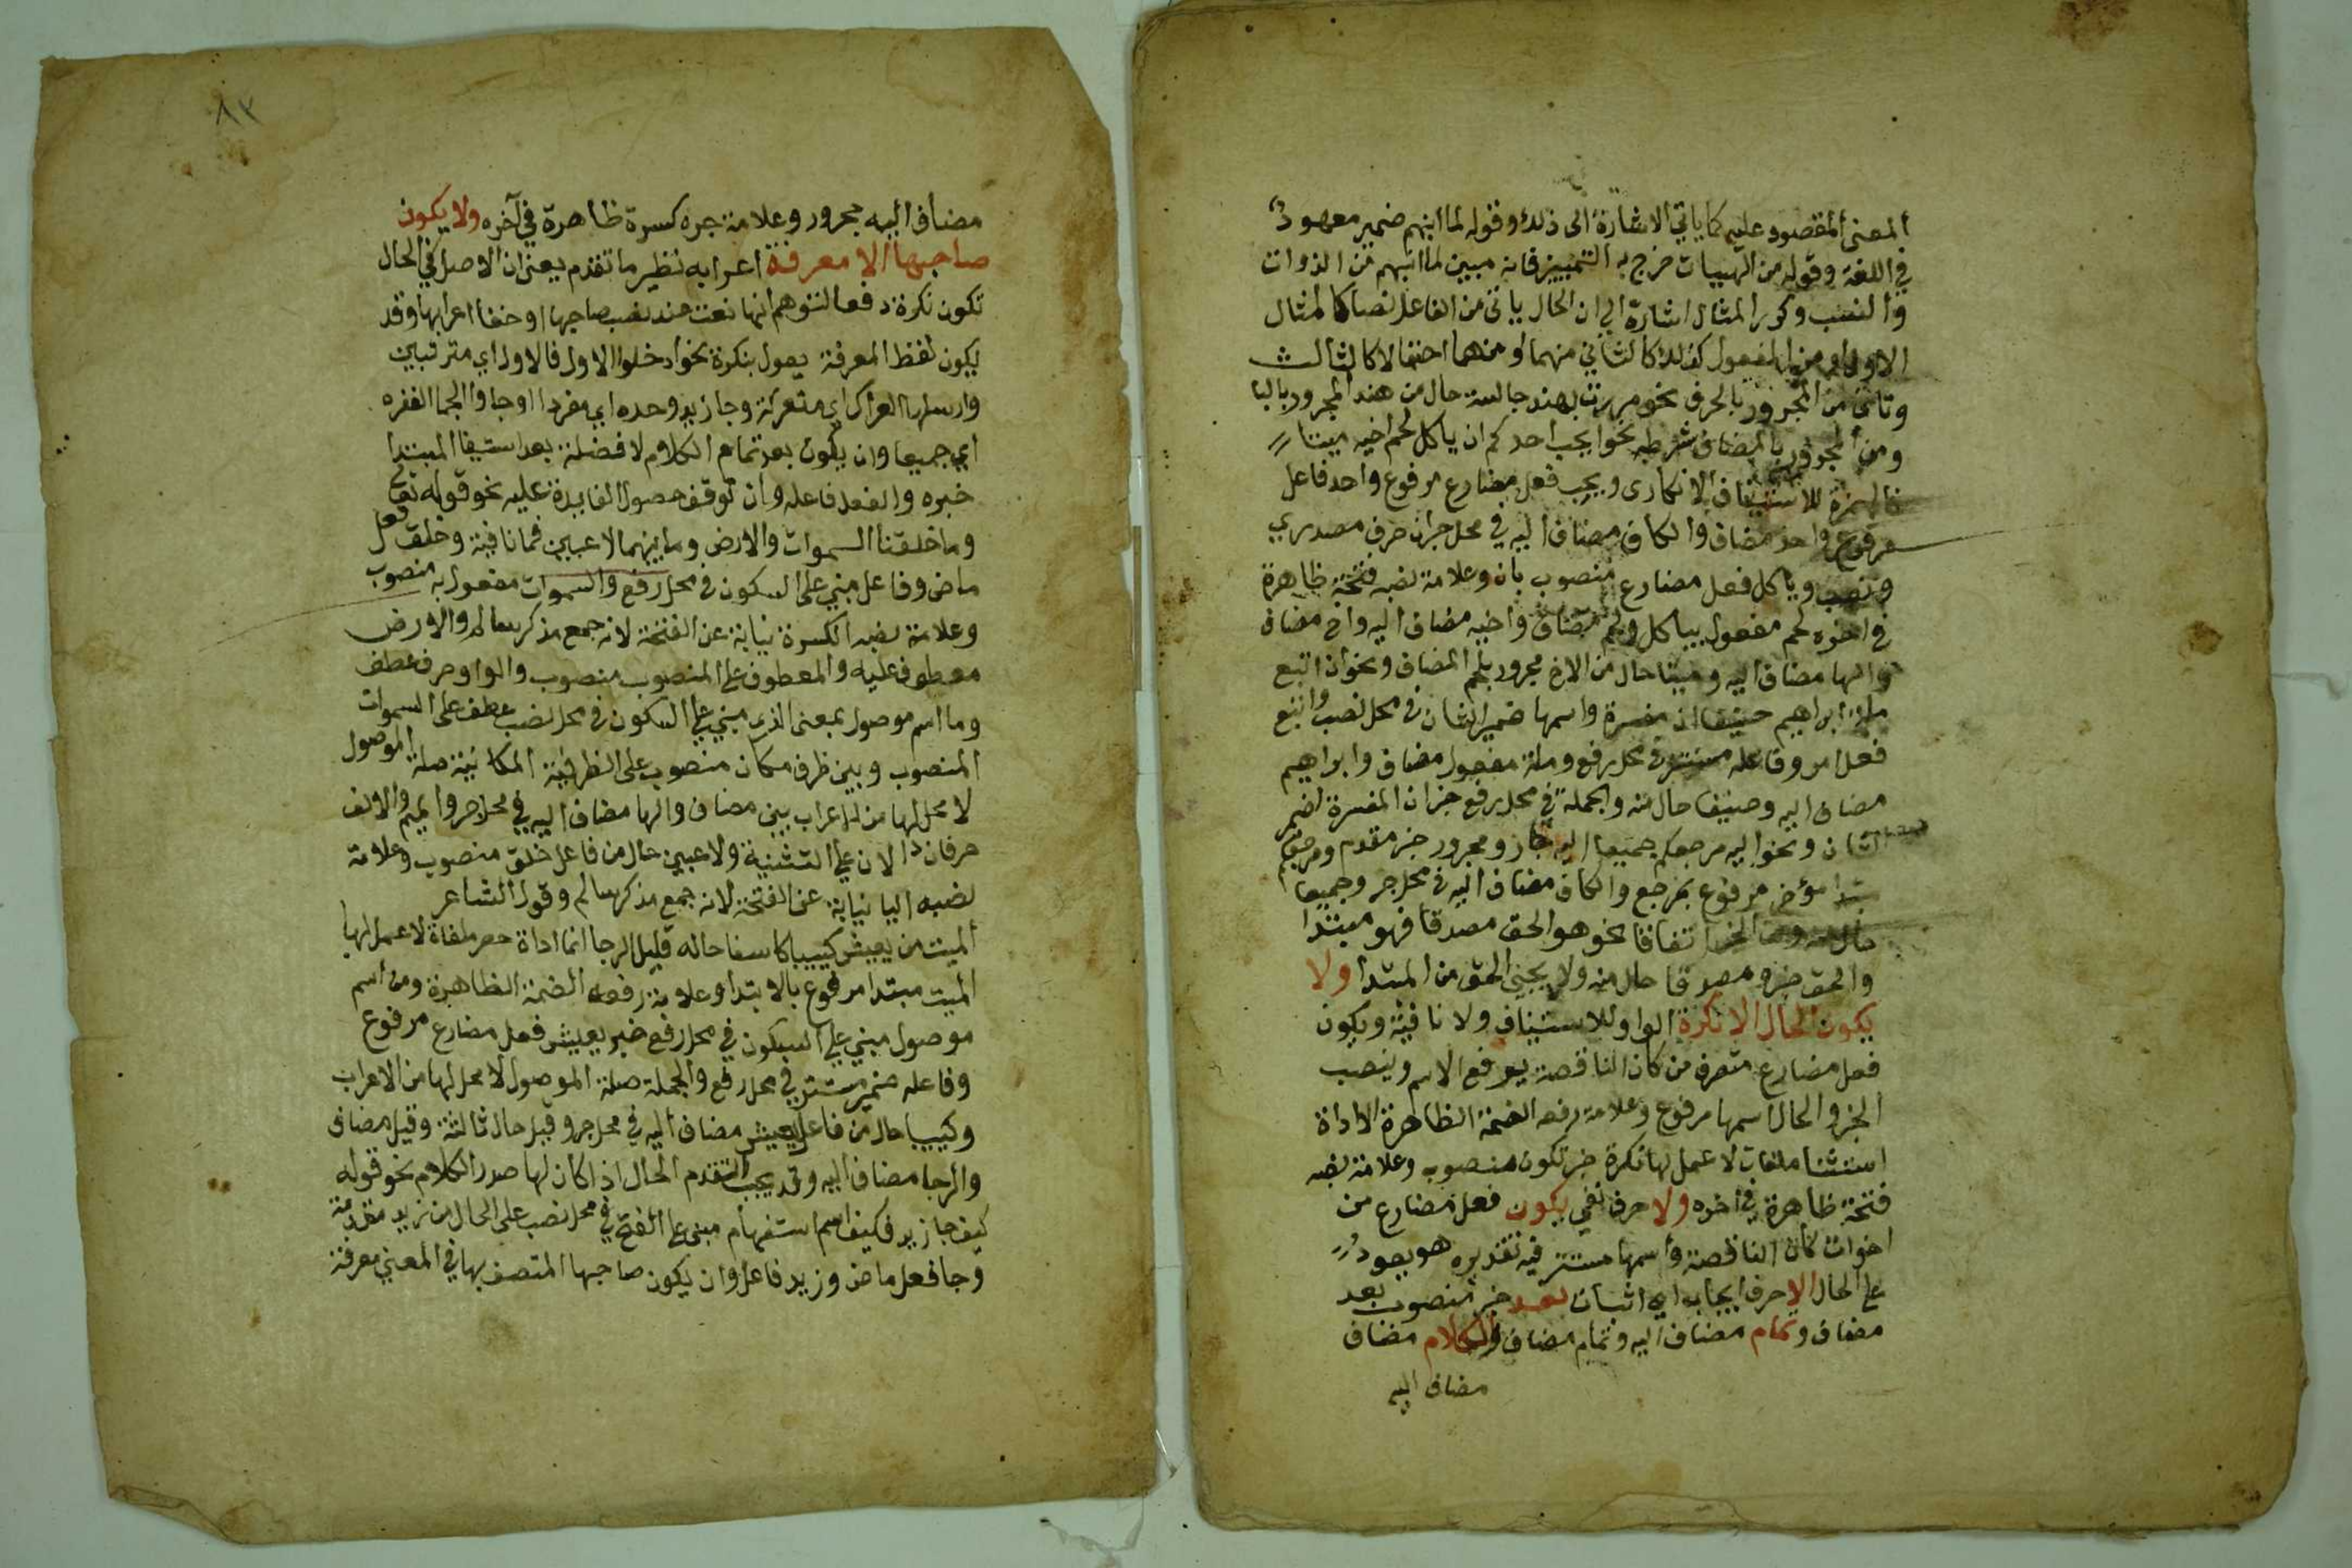 المعنى المقصود عليه كما ياتي الاشارة الى ذلك وقوله لما انبهم ضمير معهود
في اللغة وقوله من الهييات خرج به التمييز فانه مبين لما انبهم من الذوات
والنصب وكرر المثال اشارة الى ان الحال ياتى من الفاعل نصا كالمثال
الاول ومن المفعول كذلك كالثاني منهما او منهما احتمالا كالثالث
وتاتى من المجرور بالحرف نحو مررت بهند جالسة حال من هند المجرور بالبا
ومن المجرور بالمضاف شرطه نحو ايحب احدكم ان ياكل لحم اخيه ميتا
فالهمزة للاستفهام الانكارى ويحب فعل مضارع مرفوع واحد فاعل
مرفوع واحد مضاف والكاف مضاف اليه في محل جر ان حرف مصدري
ونصب وياكل فعل مضارع منصوب بان وعلامة نصبه فتحة ظاهرة
في اخره لحم مفعول بياكل ولحم مضاف واخيه مضاف اليه واخ مضاف
والها مضاف اليه وميتا حال من الاخ مجرور بلحم المضاف ونحو ان اتبع
ملة ابراهيم حنيفا ان مفسرة واسمها ضمير الشان في محل نصب واتبع
فعل امر وفاعله مستتر في محل رفع وملة مفعول مضاف وابراهيم
مضاف اليه وحنيفا حال منه والجملة في محل رفع خبر ان المفسرة
الشان ونحو اليه مرجعكم جميعا اليه جار ومجرور خبر مقدم ومرجعكم
مبتدا مؤخر مرفوع بمرجع والكاف مضاف اليه في محل جر وجميعا
حال منه ومن الخبر اتفاقا نحو هو الحق مصدقا فهو مبتدا
والحق خبره مصدقا حال منه ولا يجي الحق من المبتدا ولا
يكون الحال الا نكرة الواو للاستيناف ولا نافية ويكون
فعل مضارع متصرف من كان الناقصة يرفع الاسم وينصب
الخبر والحال اسمها مرفوع وعلامة رفعه الضمة الظاهرة الا اداة
استثنا ملغات لا عمل لها نكرة خبر تكون منصوب وعلامة نصبه
فتحة ظاهرة في اخره ولا حرف نفي يكون فعل مضارع من
اخوات كان الناقصة واسمها مستتر فيه تقديره هو يعود
على الحال الا حرف ايجاب اي اثبات بعد خبر منصوب بعد
مضاف وتمام مضاف اليه وتمام مضاف والكلام مضاف
مضاف اليه
٨٢
مضاف اليه مجرور وعلامة جره كسرة ظاهرة في آخره ولا يكون
صاحبها الا معرفة اعرابه نظير ما تقدم يعنى ان الاصل في الحال
تكون نكرة دفعا لتوهم انها نعت عند نصب صاحبها او خفا اعرابها وقد
يكون لفظ المعرفة يعول بنكرة نحو ادخلوا الاول فالاول اي مترتبين
وارسلها العراك اي معتركة وجا زيد وحده اي مفردا او جاوا الجما الغفره
اي جميعا وان يكون بعد تمام الكلام لا فضلة بعد استيفا المبتدا
خبره والفعل فاعله وان توقف حصول الفايدة عليه نحو قوله تعالى
وما خلقنا السموات والارض وما بينهما لاعبين فما نافية وخلق فعل
ماض وفاعل مبني على السكون في محل رفع والسموات مفعول به منصوب
وعلامة نصبه الكسرة نيابة عن الفتحة لانه جمع مذكر سالم والارض
معطوف عليه والمعطوف على المنصوب منصوب والواو حرف عطف
وما اسم موصول بمعنى الذي مبني على السكون في محل نصب عطف على السموات
المنصوب وبين ظرف مكان منصوب على الظرفية المكانية صلة الموصول
لا محل لها من الاعراب بين مضاف والها مضاف اليه في محل جر والميم والالف
حرفان دالان على التثنية ولاعبين حال من فاعل خلق منصوب وعلامة
نصبه اليا نيابة عن الفتحة لانه جمع مذكر سالم وقول الشاعر
الميت من يعيش كييبا كاسفا حاله قليل الرجا انما اداة حصر ملغاة لا عمل لها
الميت مبتدا مرفوع بالابتدا وعلامة رفعه الضمة الظاهرة ومن اسم
موصول مبني على السكون في محل رفع خبر يعيش فعل مضارع مرفوع
وفاعله ضمير مستتر في محل رفع والجملة صلة الموصول لا محل لها من الاعراب
وكييبا حال من فاعل يعيش مضاف اليه في محل جر وقيل حال ثالثة وقيل مضاف
والرجا مضاف اليه وقد يجب التقدم الحال اذا كان لها صدر الكلام نحو قوله
كيف جا زيد فكيف اسم استفهام مبنى على الفتح في محل نصب على الحال من زيد مقدمة
وجا فعل ماض وزيد فاعل وان يكون صاحبها المتصف بها في المعني معرفة